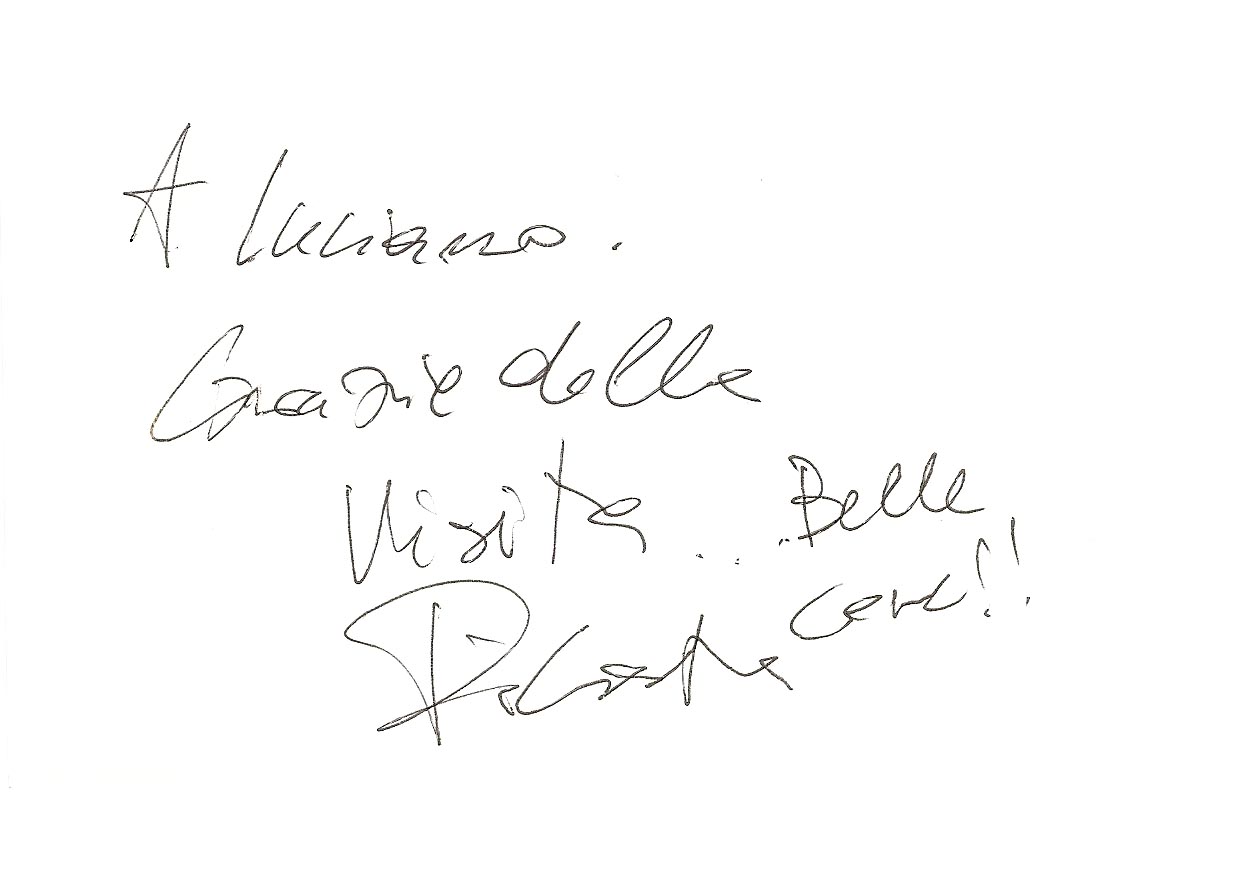 A Luciano.
Grazie della
Visita ... Belle
cene!!
Roberta